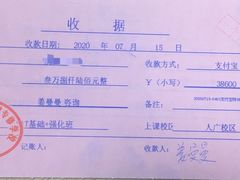 收 据
收款日期: 2020 年 07 月 15 日
收款方式: 支付宝
叁万捌仟陆佰元整 ¥(小写) 38600
姜曼曼 咨询 备注:
T基础+强化班 上课校区: 人广校区
记账人: 收款人: 姜曼曼